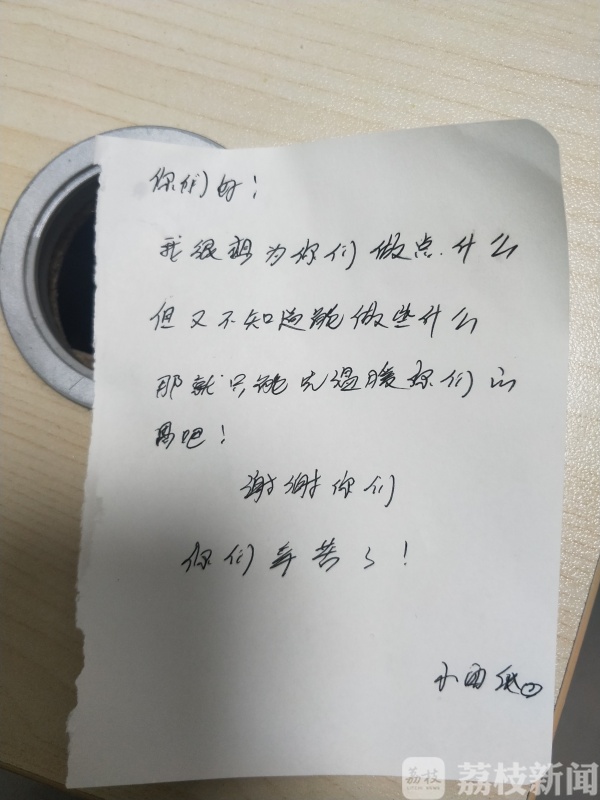 你们好！
我很想为你们做点什么
但又不知道能做些什么
那就只能先温暖你们的
胃吧！
谢谢你们
你们辛苦了！
荔枝
荔枝新闻